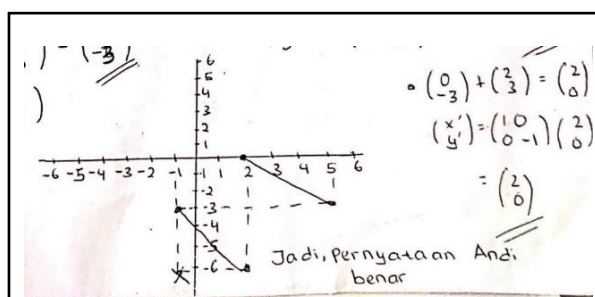 ) = (-3)
)
6
5
4
3
2
1
-6 -5 -4 -3 -2 -1 1 2 3 4 5 6
-2
-3
-4
-5
-6
• (0 -3) + (2 3) = (2 0)
(x' y') = (1 0 0 -1) (2 0)
= (2 0)
Jadi, Pernyataan Andi
benar